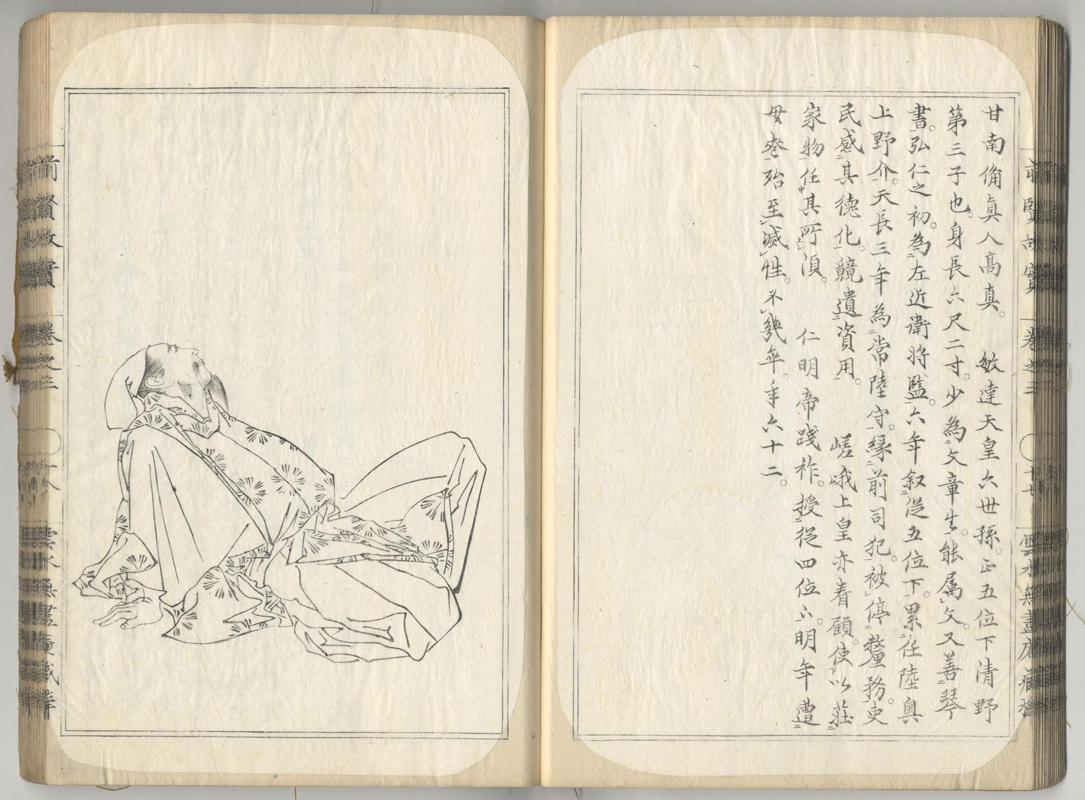 甘南備真人高真。　敏達天皇六世孫。正五位下清野
第三子也。身長六尺二寸。少為文章生。能属文又善琴
書。弘仁之初。為左近衛将監。六年叙従五位下。累任陸奥
上野介。天長三年為常陸守。縁前司犯。被停釐務。吏
民感其徳化。競遺資用。　嵯峨上皇亦眷顧。使以荘
家物任其所須。　仁明帝践祚。授従四位下。明年遭
母喪。殆至滅性。不幾卒。年六十二。
前賢故實
巻之三
雲水無盡庵蔵